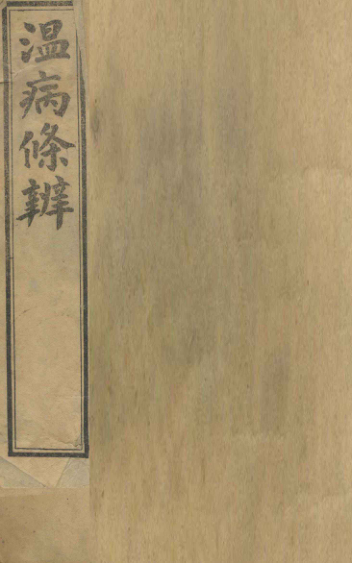 温病條辨